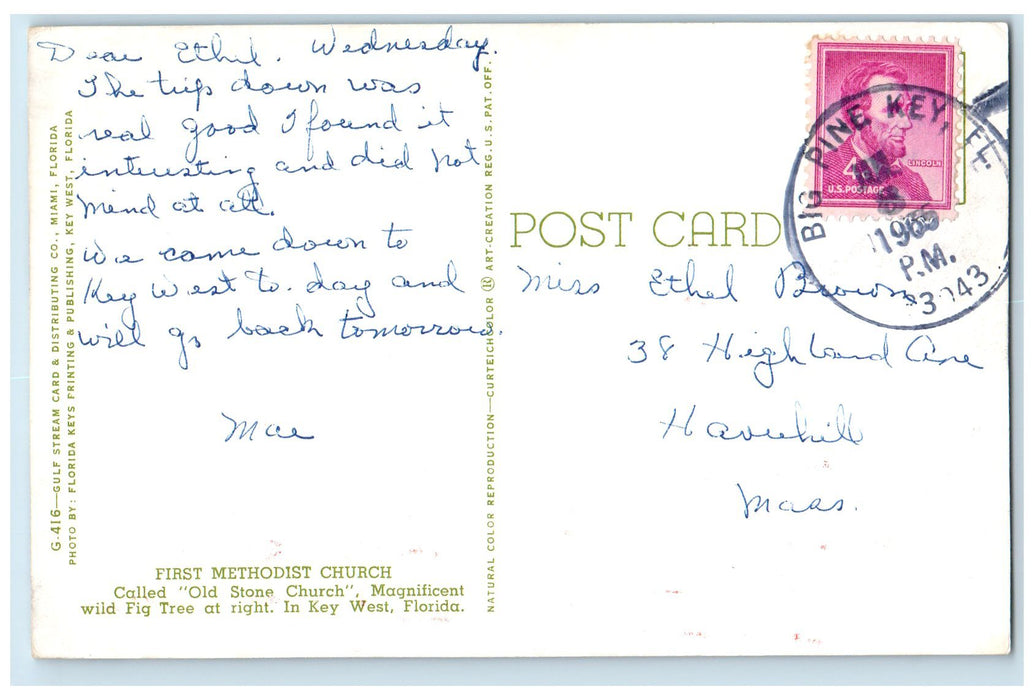 Dear Ethel. Wednesday.
The trip down was
real good I found it
interesting and did not
mind at all.
We came down to
Key West to-day and
will go back tomorrow.
Mae
G-416—GULF STREAM CARD & DISTRIBUTING CO., MIAMI, FLORIDA
PHOTO BY: FLORIDA KEYS PRINTING & PUBLISHING, KEY WEST, FLORIDA
FIRST METHODIST CHURCH
Called "Old Stone Church", Magnificent
wild Fig Tree at right. In Key West, Florida.
NATURAL COLOR REPRODUCTION—CURTEICHCOLOR ® ART-CREATION REG. U.S. PAT. OFF.
POST CARD
LINCOLN
4
U.S. POSTAGE
BIG PINE KEY, FL
P.M.
Miss Ethel Brown
38 Highland Ave
Haverhill
Mass.